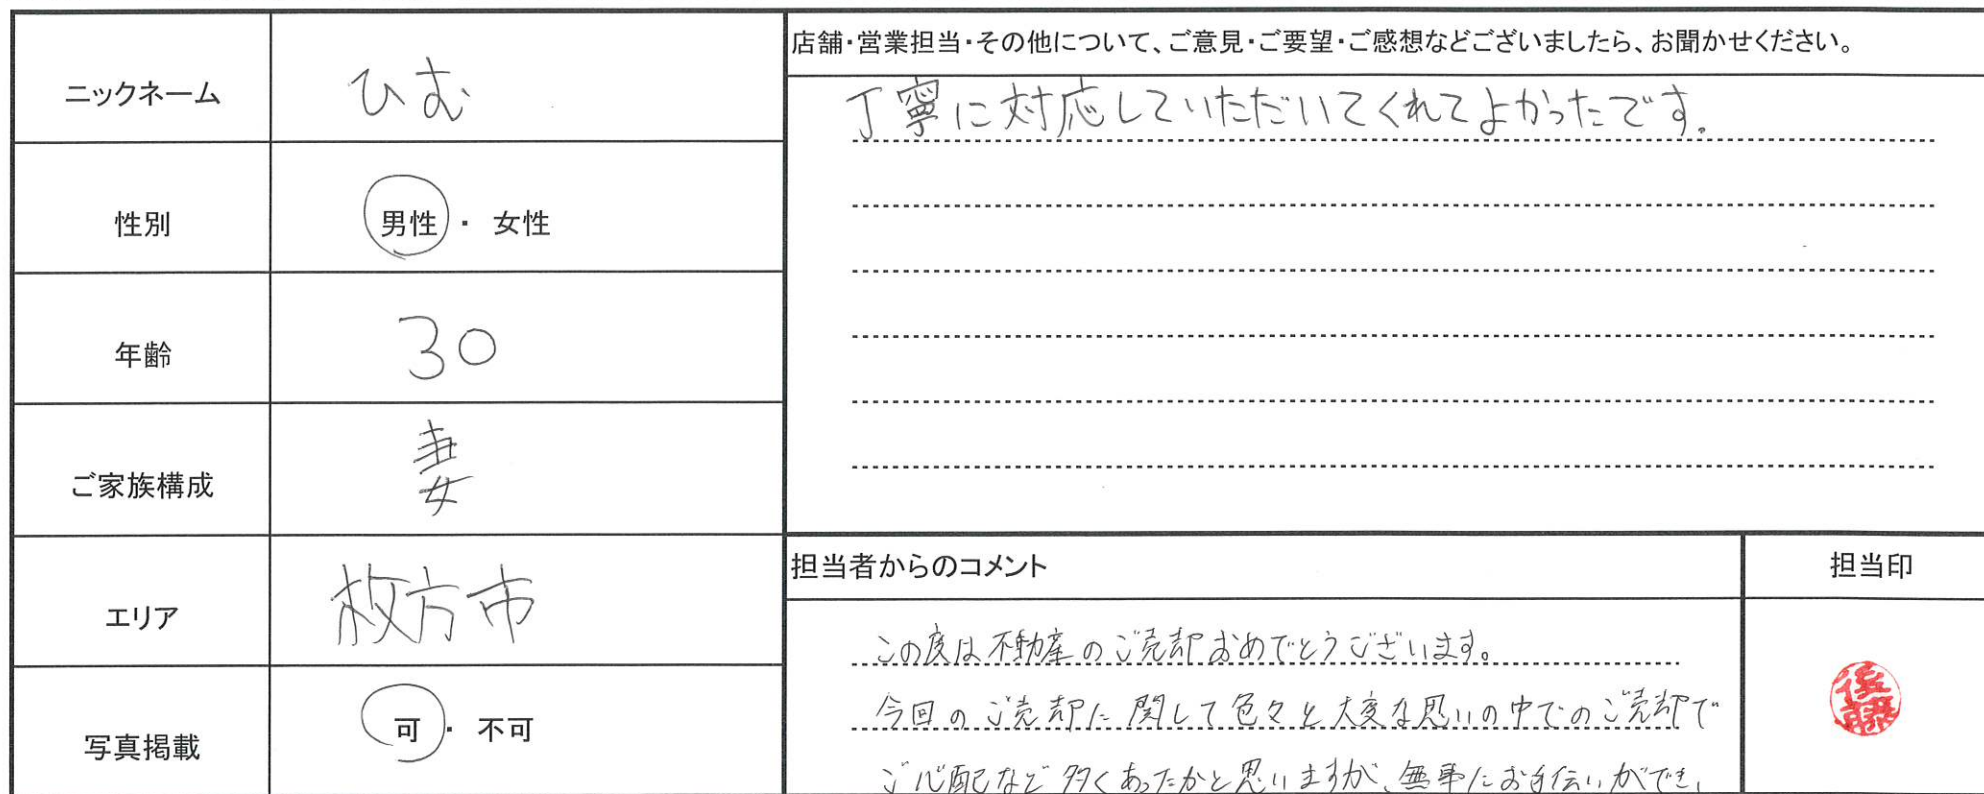 ニックネーム
ひむ
性別
男性・女性
年齢
30
ご家族構成
妻
エリア
枚方市
写真掲載
可・不可
店舗・営業担当・その他について、ご意見・ご要望・ご感想などございましたら、お聞かせください。
丁寧に対応していただいてくれてよかったです。
担当者からのコメント
この度は不動産のご売却おめでとうございます。
今回のご売却に関して色々と大変な思いの中でのご売却で
ご心配など多くあったかと思いますが、無事にお手伝いができ、
担当印
後藤